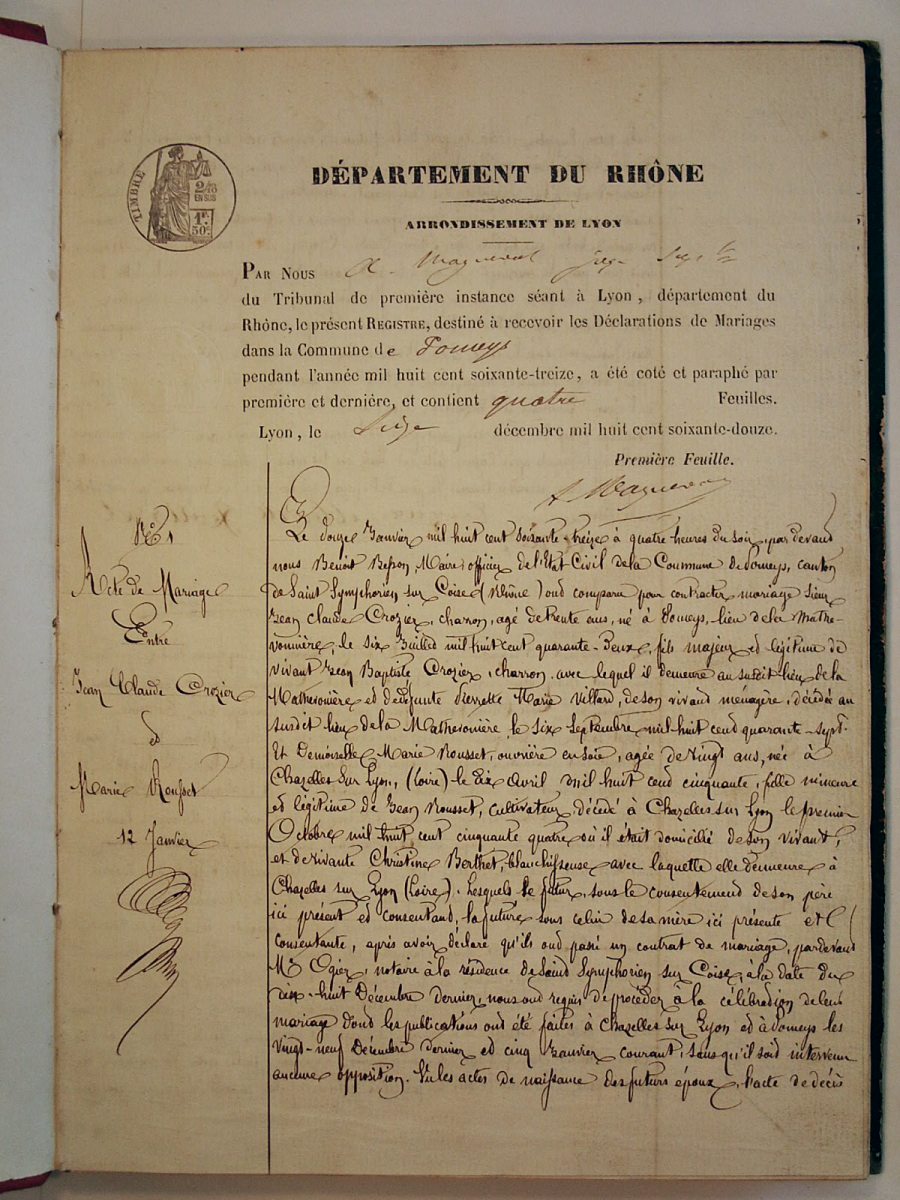 TIMBRE
2/10
EN SUS
1F.
50c.
DÉPARTEMENT DU RHÔNE
ARRONDISSEMENT DE LYON
PAR NOUS
du Tribunal de première instance séant à Lyon, département du
Rhône, le présent REGISTRE, destiné à recevoir les Déclarations de Mariages
dans la Commune de Pomeys
pendant l'année mil huit cent soixante-treize, a été coté et paraphé par
première et dernière, et contient quatre Feuilles.
Lyon, le Seize décembre mil huit cent soixante-douze.
Première Feuille.
No 1
Acte de Mariage
Entre
Jean Claude Crozier
et
Marie Rousset
12 Janvier
Le douze Janvier mil huit cent soixante-treize à quatre heures du soir, par devant
nous Benoit Maire, officier de l'Etat Civil de la Commune de Pomeys, canton
de Saint Symphorien sur Coise (Rhône) ont comparu pour contracter mariage Sieur
Jean Claude Crozier, charron, agé de trente ans, né à Pomeys, lieu de la Mathe-
vonnière, le six Juillet mil huit cent quarante-deux, fils majeur et légitime de
vivant Jean Baptiste Crozier, charron, avec lequel il demeure au susdit lieu de la
et de défunte Pierrette Marie Villard, de son vivant ménagère, décédée au
susdit lieu de la le six Septembre mil huit cent quarante-sept.
Et Demoiselle Marie Rousset, ouvrière en soie, agée de vingt ans, née à
Chazelles sur Lyon, (Loire) le dix Avril mil huit cent cinquante, fille mineure
et légitime de Jean Rousset, cultivateur, décédé à Chazelles sur Lyon le premier
Octobre mil huit cent cinquante quatre où il était domicilié de son vivant,
et de vivante Christine Berthet, blanchisseuse avec laquelle elle demeure à
Chazelles sur Lyon (Loire). Lesquels le futur, sous le consentement de son père
ici présent et consentant, la future sous celui de sa mère ici présente et
consentante, après avoir déclaré qu'ils ont passé un contrat de mariage, pardevant
Me Ogier, notaire à la résidence de Saint Symphorien sur Coise, à la date du
dix-huit Décembre dernier, nous ont requis de procéder à la célébration de leur
mariage dont les publications ont été faites à Chazelles sur Lyon et à Pomeys les
vingt-neuf Décembre dernier et cinq Janvier courant, sans qu'il soit intervenu
aucune opposition. Vu les actes de naissance des futurs époux, l'acte de décès